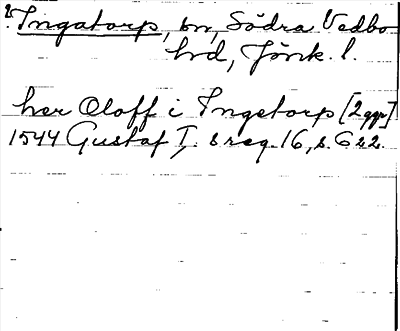 ? Ingatorp, sn, Södra Vedbo
hd, Jönk. l.
her Oloff i Ingetorp [2 ggr]
1544 Gustaf I:s reg. 16, s. 622.